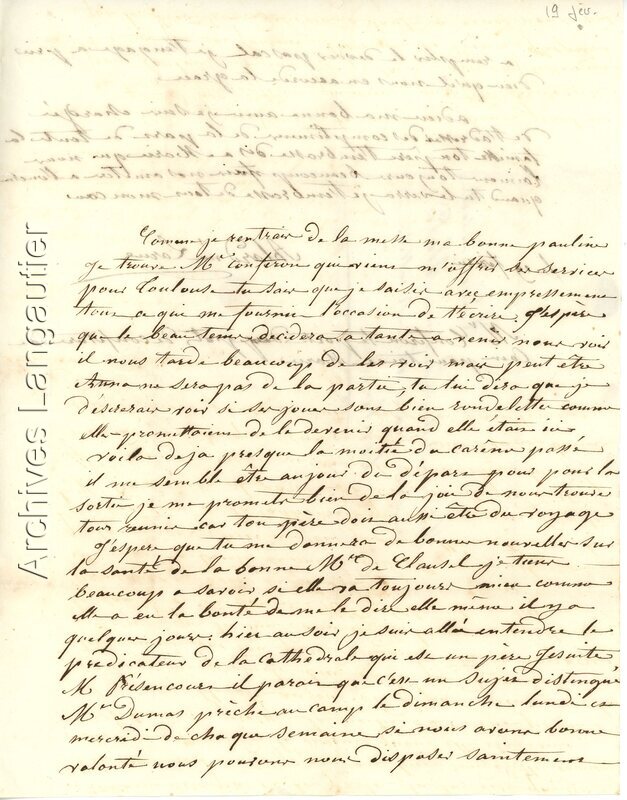 19 fév.
Comme je rentrais de la messe ma bonne pauline
je trouve Mr conferou qui viens m'offrir ses services
pour Toulouse tu sais que je saisis avec empressement
tous ce que me fournis l'occasion de t'écrire, J'espère
que le beau tems décidera ta tante a venir nous voir
il nous tarde beaucoup de les voir mais peut être
Anna ne sera pas de la partie, tu lui diras que je
désirerais voir si ses joues sons bien rondelette comme
elle promettoiens de le devenir quand elle étais ici
voila deja presque la moitié du carême passé
il me semble être au jour du départ pour pour la
sortie je me promets bien de la joie de nous trouver
tous reunis car ton père dois aussi être du voyage
J'espere que tu me donneras de bonne nouvelles sur
la santé de la bonne Mme de Clausel je tiens
beaucoup a savoir si elle va toujours mieu comme
elle a eu la bonté de me le dire elle même il y a
quelques jours, hier au soir je suis allée entendre le
prédicateur de la cathédrale qui est un père Jesuite
M Présencourt il parais que c'est un sujet distingué
Mr Dumas prêche au camp le dimanche lundi et
mercredi de chaque semaine si nous avons bonne
volonté nous pouvons nous disposer saintement
Archives Langautier